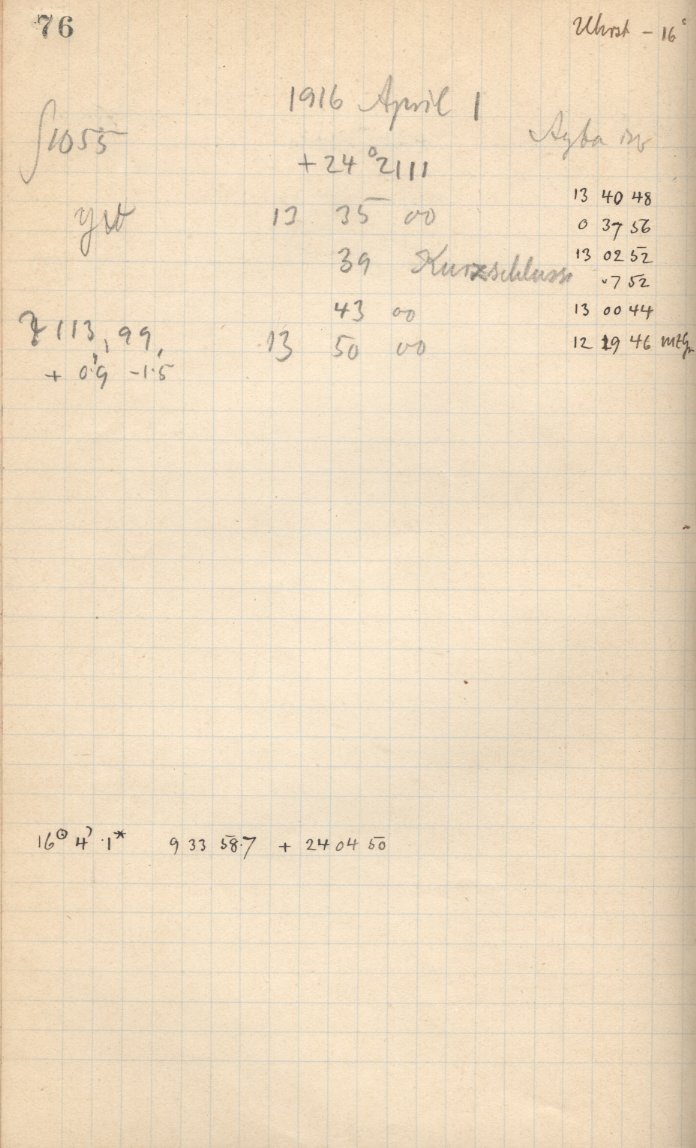 76
Uhrst - 16°
1916 April 1
1055
+ 24° 2111
13 35 00
39 Kurzschluss
43 00
113, 99, 13 50 00
+ 0.9 -1.5
13 40 48
0 37 56
13 02 52
7 52
13 00 44
12 29 46
16☉ 4☽ .1* 9 33 58.7 + 24 04 50